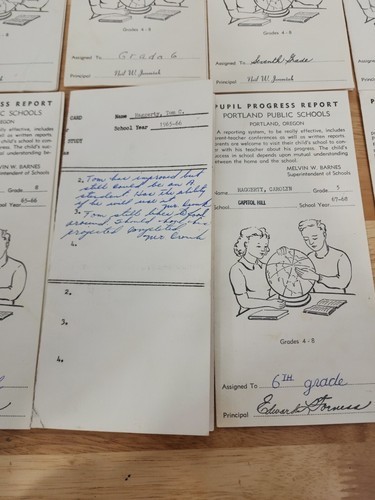 Grades 4 - 8
Assigned To Grade 6
Principal
Grades 4 - 8
Assigned To Seventh Grade
Principal
ESS REPORT
IC SCHOOLS
GON
effective, includes
as written reports.
child's school to con-
The child's suc-
understanding be-
MELVIN W. BARNES
Superintendent of Schools
Grade 8
School Year 65-66
CARD
Name Haggerty, Tom C.
School Year 1965-66
2. Tom has improved but
still could be an A
student. Has the ability
if he will use it
3. Tom still likes to fool
around. Should have his
projected completed
4.
2.
3.
4.
PUPIL PROGRESS REPORT
PORTLAND PUBLIC SCHOOLS
PORTLAND, OREGON
A reporting system, to be really effective, includes
parent-teacher conferences as well as written reports.
Parents are welcome to visit their child's school to con-
with his teacher about his progress. The child's suc-
cess in school depends upon mutual understanding be-
tween the home and the school.
MELVIN W. BARNES
Superintendent of Schools
Name HAGGERTY, CAROLYN Grade 5
School CAPITOL HILL School Year 67-68
Grades 4 - 8
Assigned To 6TH grade
Principal Edward L. Forness